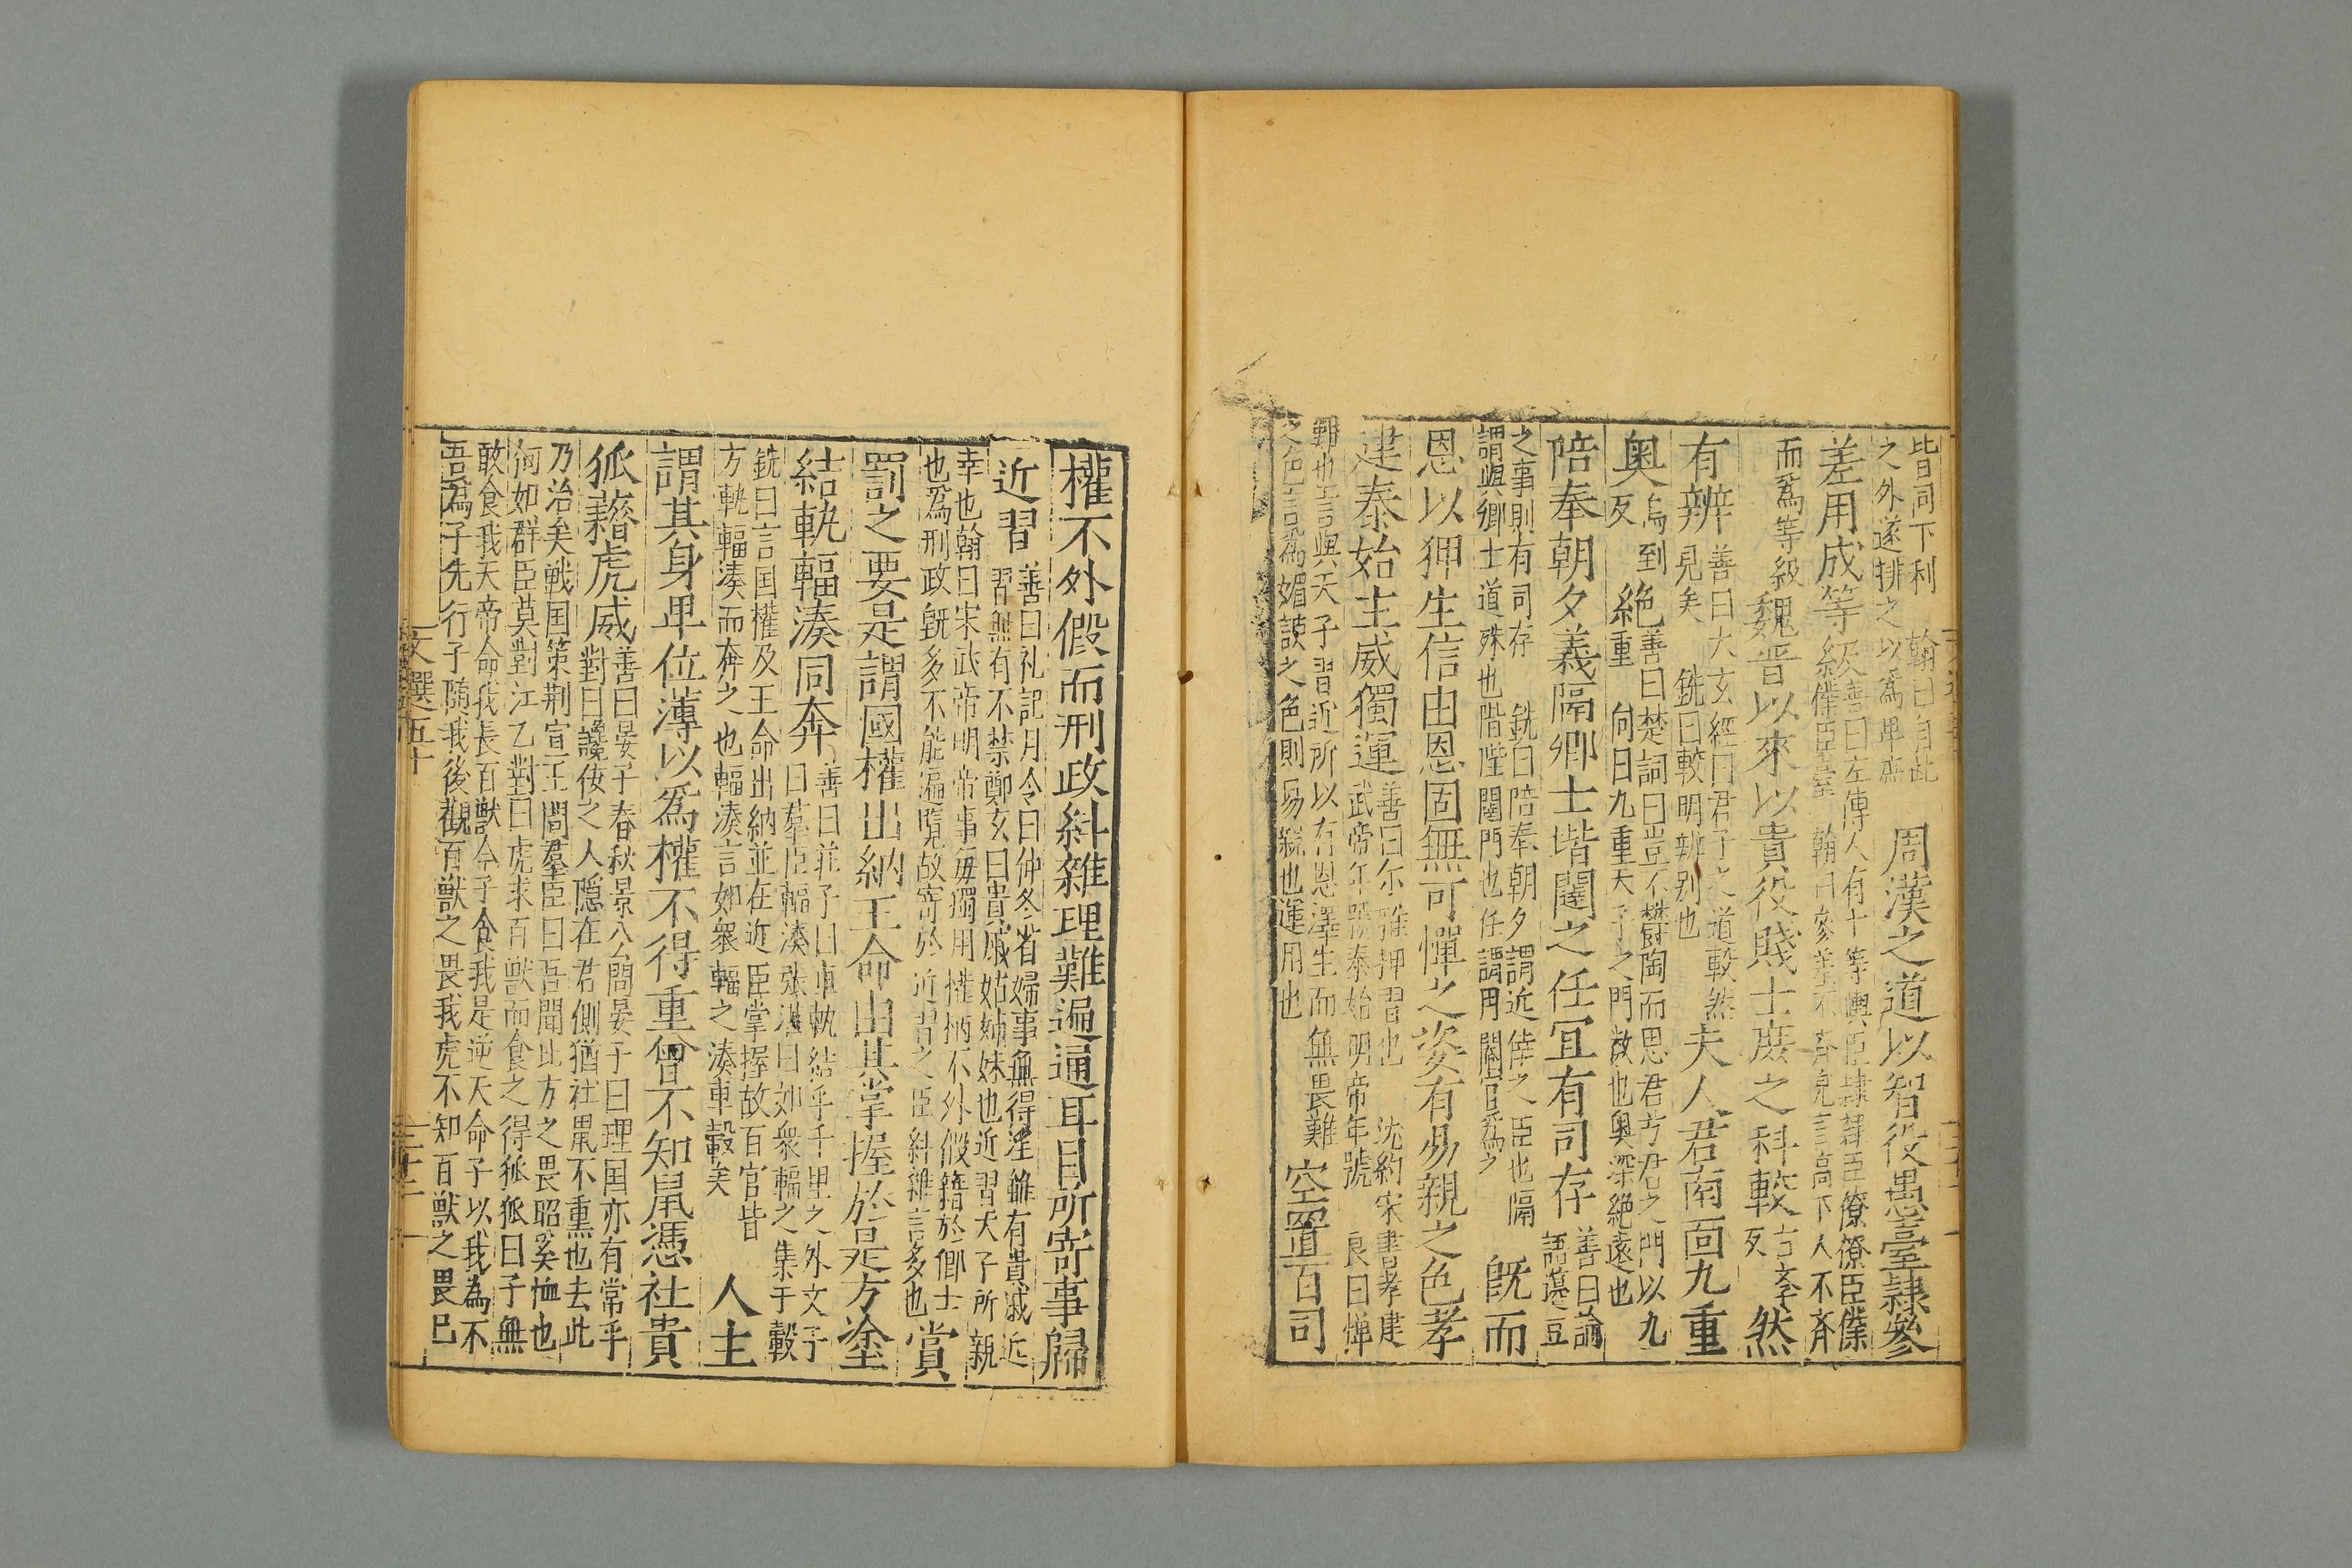 皆同下利　翰曰自此
之外遂排之以爲卑庶
周漢之道以智役愚臺隷參
差用成等級
善曰左傳人有十等輿臣隷隷臣僚僚臣僕
僕臣臺　翰曰參差不斉皃言高下人不斉
而爲等級
魏晋以來以貴役賤士庶之科較
然
有辨
善曰太玄經曰君子之道較然
見矣　銑曰較明辨别也
夫人君南面九重
奥
烏到
反
絶
善曰楚詞曰豈不欝陶而思君兮君之門以九
重　向曰九重天子之門數也奥深絶遠也
陪奉朝夕義隔卿士堦闥之任宜有司存
善曰論
語籩豆
之事則有司存　銑曰陪奉朝夕謂近倖之臣也隔
謂與卿士道殊也階陛闥門也任謂用閹官爲之
旣而
恩以狎生信由恩固無可憚之姿有易親之色孝
建泰始主威獨運
善曰尓雅狎習也　沈約宋書孝建
武帝年號泰始明帝年號　良曰憚
難也言與天子習近所以有恩澤生而無畏難
之色言爲媚諛之色則易親也運用也
空置百司
權不外假而刑政紏雜理難遍通耳目所寄事歸
近習
善曰礼記月令曰仲冬省婦事無得淫雖有貴戚近
習無有不禁鄭玄曰貴戚姑姊妹也近習天子所親
幸也翰曰宋武帝明帝事毎獨用權柄不外假籍於卿士
也爲刑政旣多不能遍覽故寄於近習之臣紏雜言多也
賞
罰之要是謂國權出納王命由其掌握於是方塗
結軌輻湊同奔
善曰莊子曰車軌結乎千里之外文子
曰羣臣輻湊張湛曰如衆輻之集于轂
銑曰言国權及王命出納並在近臣掌握故百官皆
方軌輻湊而奔之也輻湊言如衆輻之湊車轂矣
人主
謂其身卑位薄以爲權不得重曾不知鼠憑社貴
狐藉虎威
善曰晏子春秋景公問晏子曰理国亦有常乎
對曰讒佞之人隠在君側猶社鼠不熏也去此
乃治矣戦国策荆宣王問羣臣曰吾聞北方之畏昭奚恤也
何如群臣莫對江乙對曰虎求百獸而食之得狐狐曰子無
敢食我天帝命我長百獸今子食我是逆天命子以我為不
吾爲子先行子隨我後觀百獸之畏我虎不知百獸之畏已
文選五十